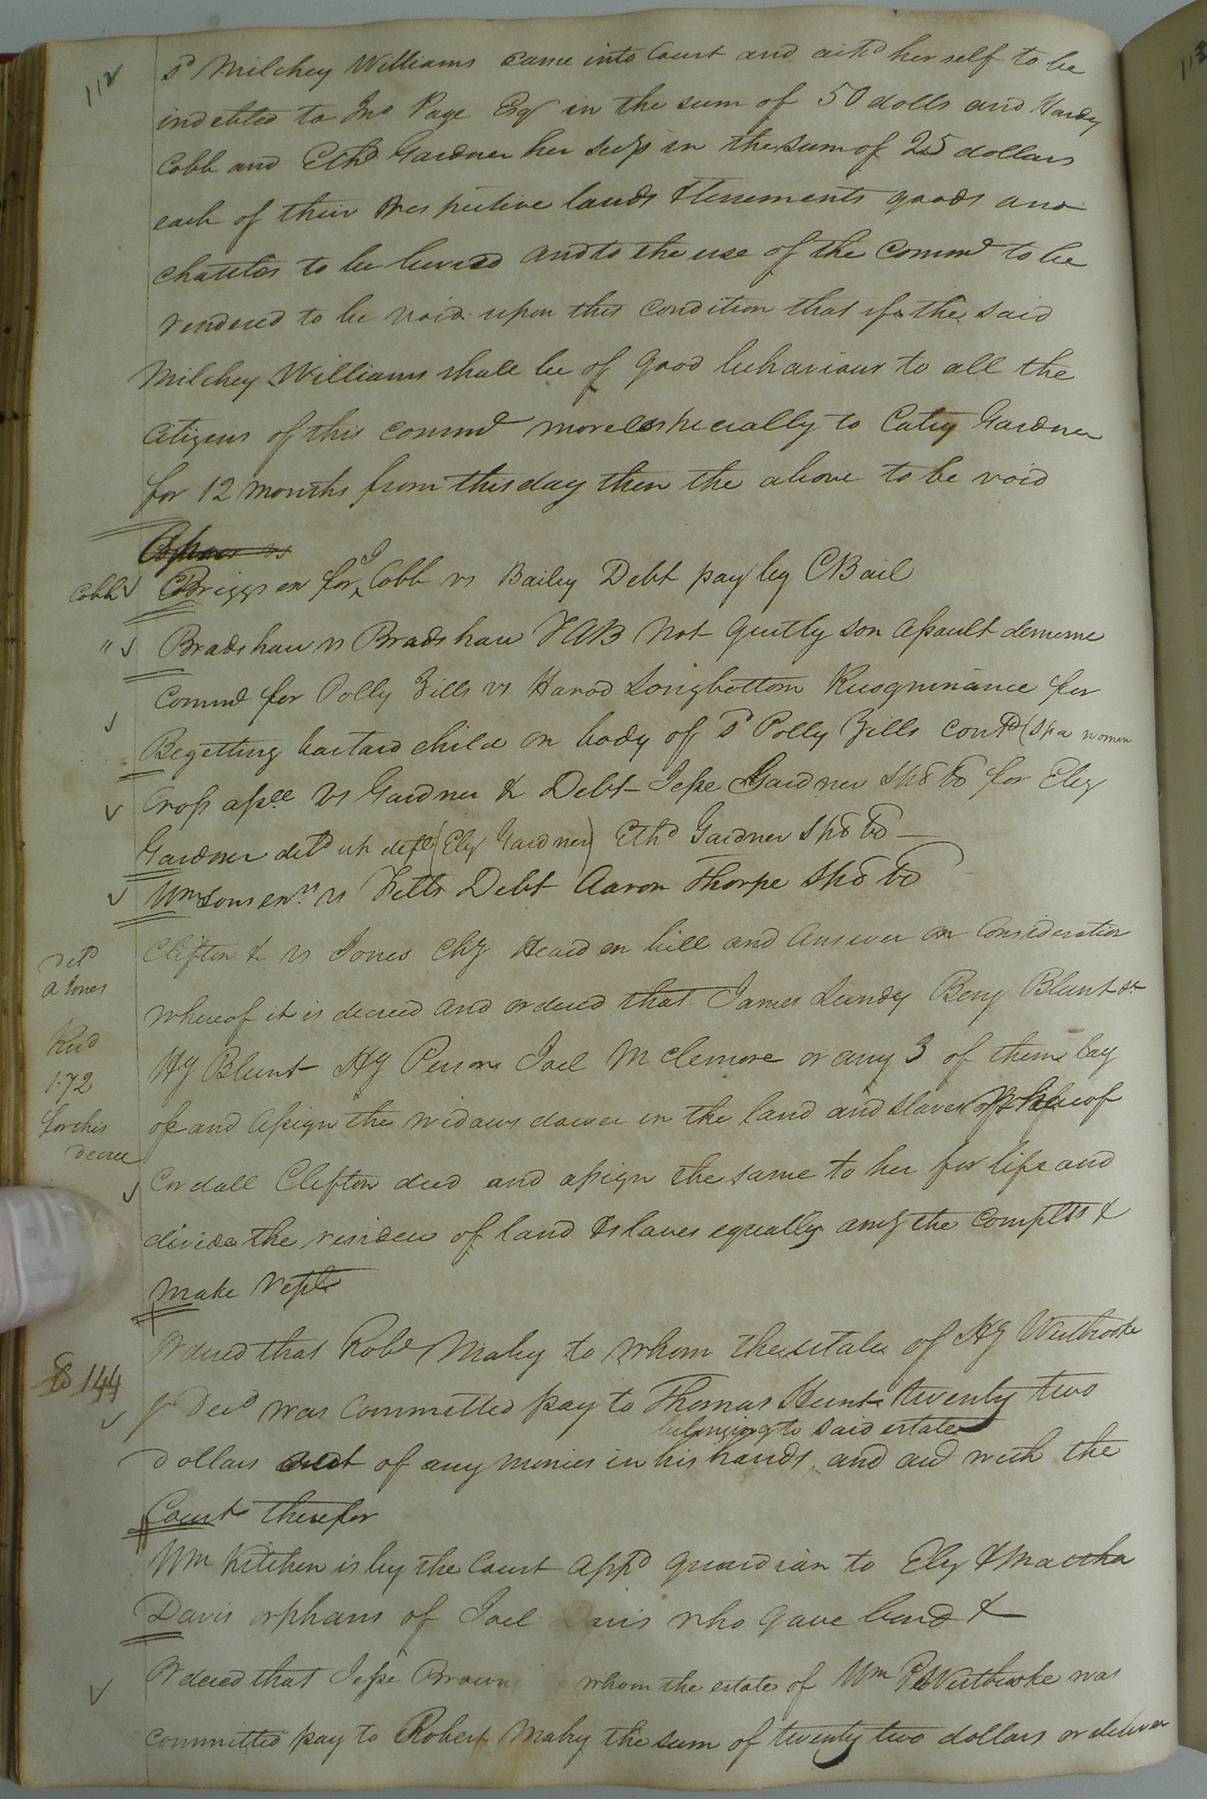 112
sd Milchey Williams came into Court and ackd her self to be
indebted to Jno Page Esqr in the sum of 50 dolls and Hardy
Cobb and Ethd Gardner her secys in the sum of 25 dollars
each of their respective lands & tenements goods and
chatteles to be levied and to the use of the Commd to be
rendered to be void upon this condition that if the said
Milchey Williams shall be of good behaviour to all the
Citizens of this commd more especially to Catey Gardner
for 12 months from this day then the above to be void
Cobb Briggs ex for J Cobb vs Bailey Debt pay by C Bail
" Bradshaw vs Bradshaw TAB not guilty son assault demesne
Commd for Polly Fills vs Harod Longbottom Recognisance for
Begetting bastard child on body of sd Polly Fills contd (Spa women
Cross assee vs Gardner & Debt Jesse Gardner Spd bd for Eley
Gardner detd wh deft (Eley Gardner) Ethd Gardner Spd bd
Wmsons exrs vs Felts Debt Aaron Thorpe Spd bd
Clifton & vs Jones Chy Heard on bill and Answer on Consideration
whereof it is decreed and ordered that James Lundy Benj Blunt sr
Hy Blunt Hy Person Joel McLemore or any 3 of them lay
off and assign the widows dower in the land and slaves whereof
Cordall Clifton died and assign the same to her for life and
divide the residue of land & slaves equally amg the complts &
make rept
detd
a Jones
Recd
1.72
for this
decree
Ordered that Robt Mabry to whom the estate of Hy Westbrooke
Jr Decd was committed pay to Thomas Hunt twenty two
belonging to said estate
dollars out of any monies in his hands and act with the
Court therefor
144
Wm Kitchen is by the Court Appd guardian to Eley & Martha
Davis orphans of Joel Davis who gave bond &
Ordered that Jesse Brown whom the estate of Wm P Westbrooke was
committed pay to Robert Mabry the sum of twenty two dollars or deliver